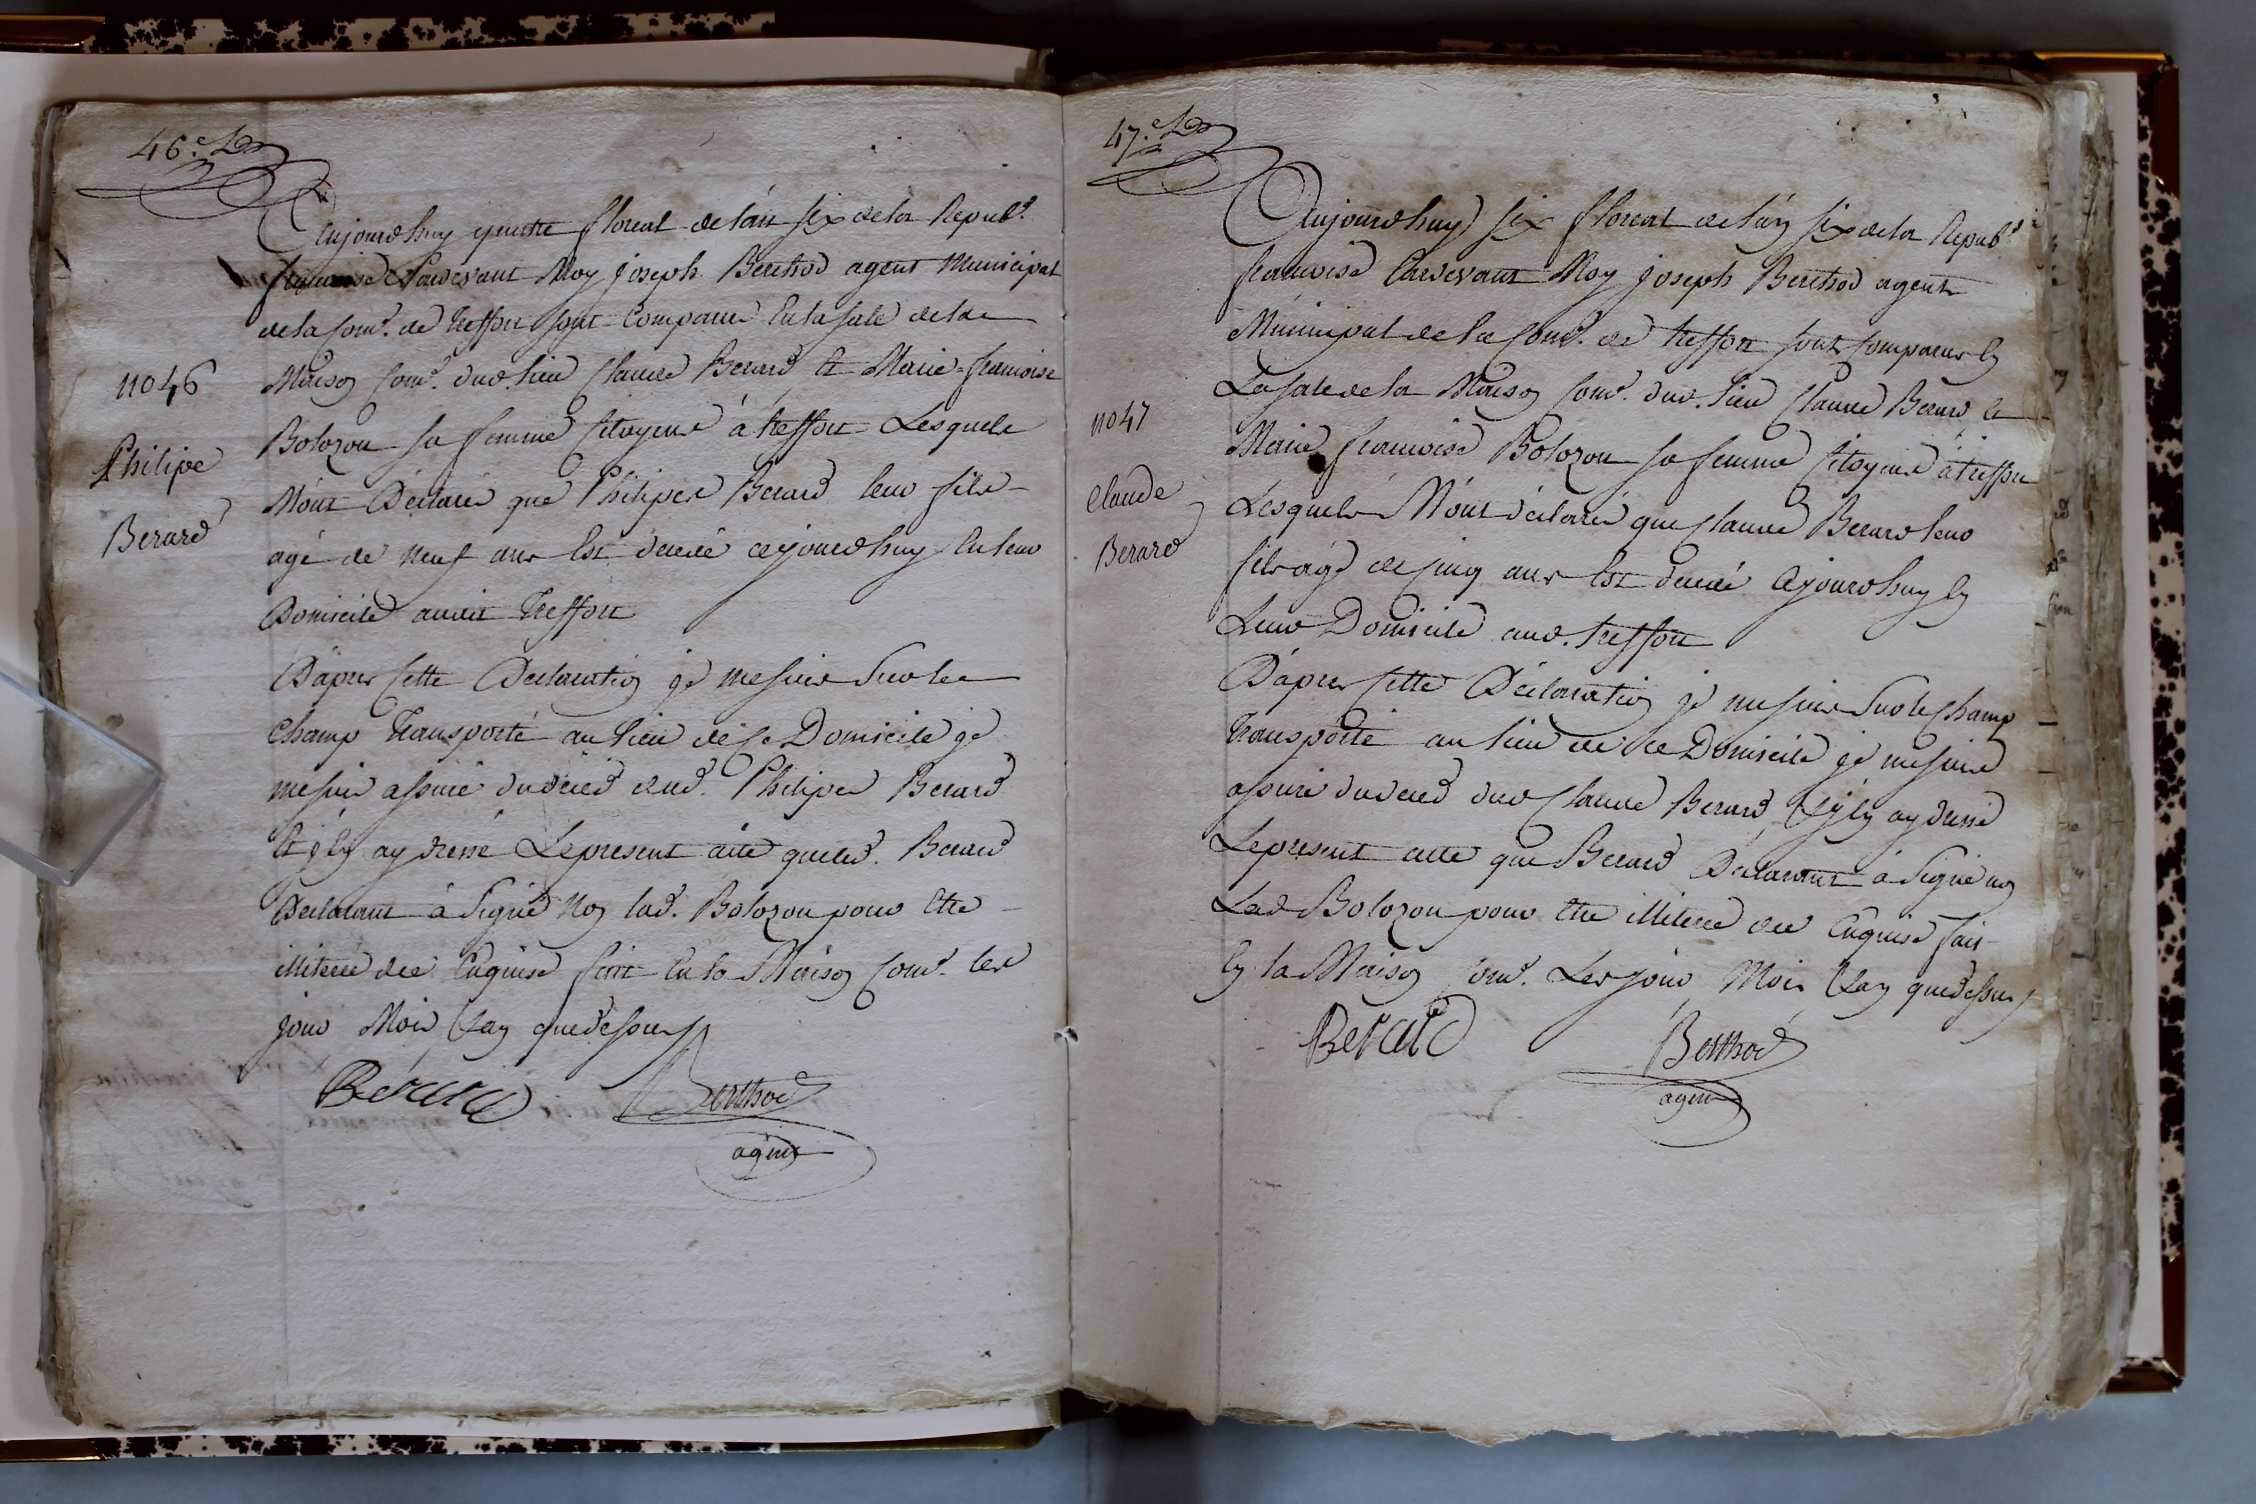 46.e
Aujourdhuy quatre floreal de lan six de la Republ.
francoise Pardevant Moy joseph Berthod agent Municipal
de la Com.e de treffort sont Comparu En la sale de la
no 46
Maison Com.e dud. lieu Claude Berard et Marie-francoise
Bolozon sa femme Citoyens à treffort Lesquels
Philipe
M'ont Déclaré que Philipe Berard leur fils
Berard
agé de neuf ans Est décédé cejourdhuy En leur
Domicile audit treffort
D'après Cette Declaration je me suis Sur le
Champ transporté au lieu de Ce Domicile je
me suis assuré du décéd dud. Philipe Berard
Et j'En ay dressé Le present acte que led. Berard
Declarant à Signé Non lad. Bolozon pour Etre
illiteré de Enquise fait En la Maison Com.e les
jour Mois Et an que dessus
Berard Berthod
agent
47.e
Aujourdhuy six floreal de l'an six de la Republ.
francoise Pardevant Moy joseph Berthod agent
Municipal de la Com.e de treffort sont Comparus En
La sale de la Maison Com.e dud. lieu Claude Berard et
no 47
Marie francoise Bolozon sa femme Citoyens à treffort
Claude
Lesquels M'ont déclaré que Claude Berard leur
Berard
fils agé de Cinq ans Est décédé Cejourdhuy En
Leur Domicile aud. treffort
D'après Cette Déclaration je me suis Sur le Champ
transporté au lieu de ce Domicile je me suis
assuré du décéd dud Claude Berard Et j'En ay dressé
Le present acte que Berard Déclarant à Signé non
Lad Bolozon pour Etre illiteré de Enquise fait
En la Maison Com.e Les jour Mois Et an que dessus
Berard Berthod
agent